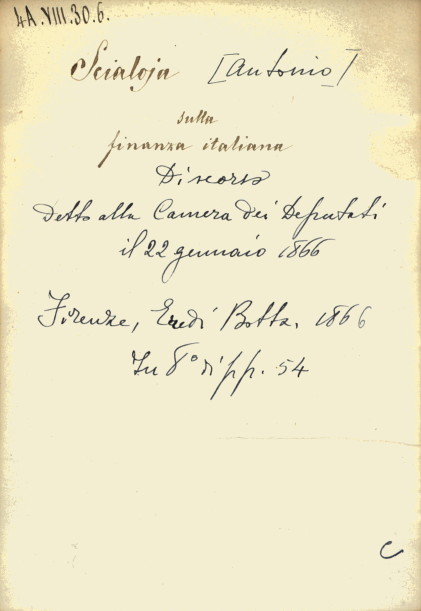 4A.VIII.30.6.
Scialoja [Antonio]
sulla
finanza italiana
Discorso
detto alla Camera dei Deputati
il 22 gennaio 1866
Firenze, Eredi Botta, 1866
In 8° di pp. 54
C